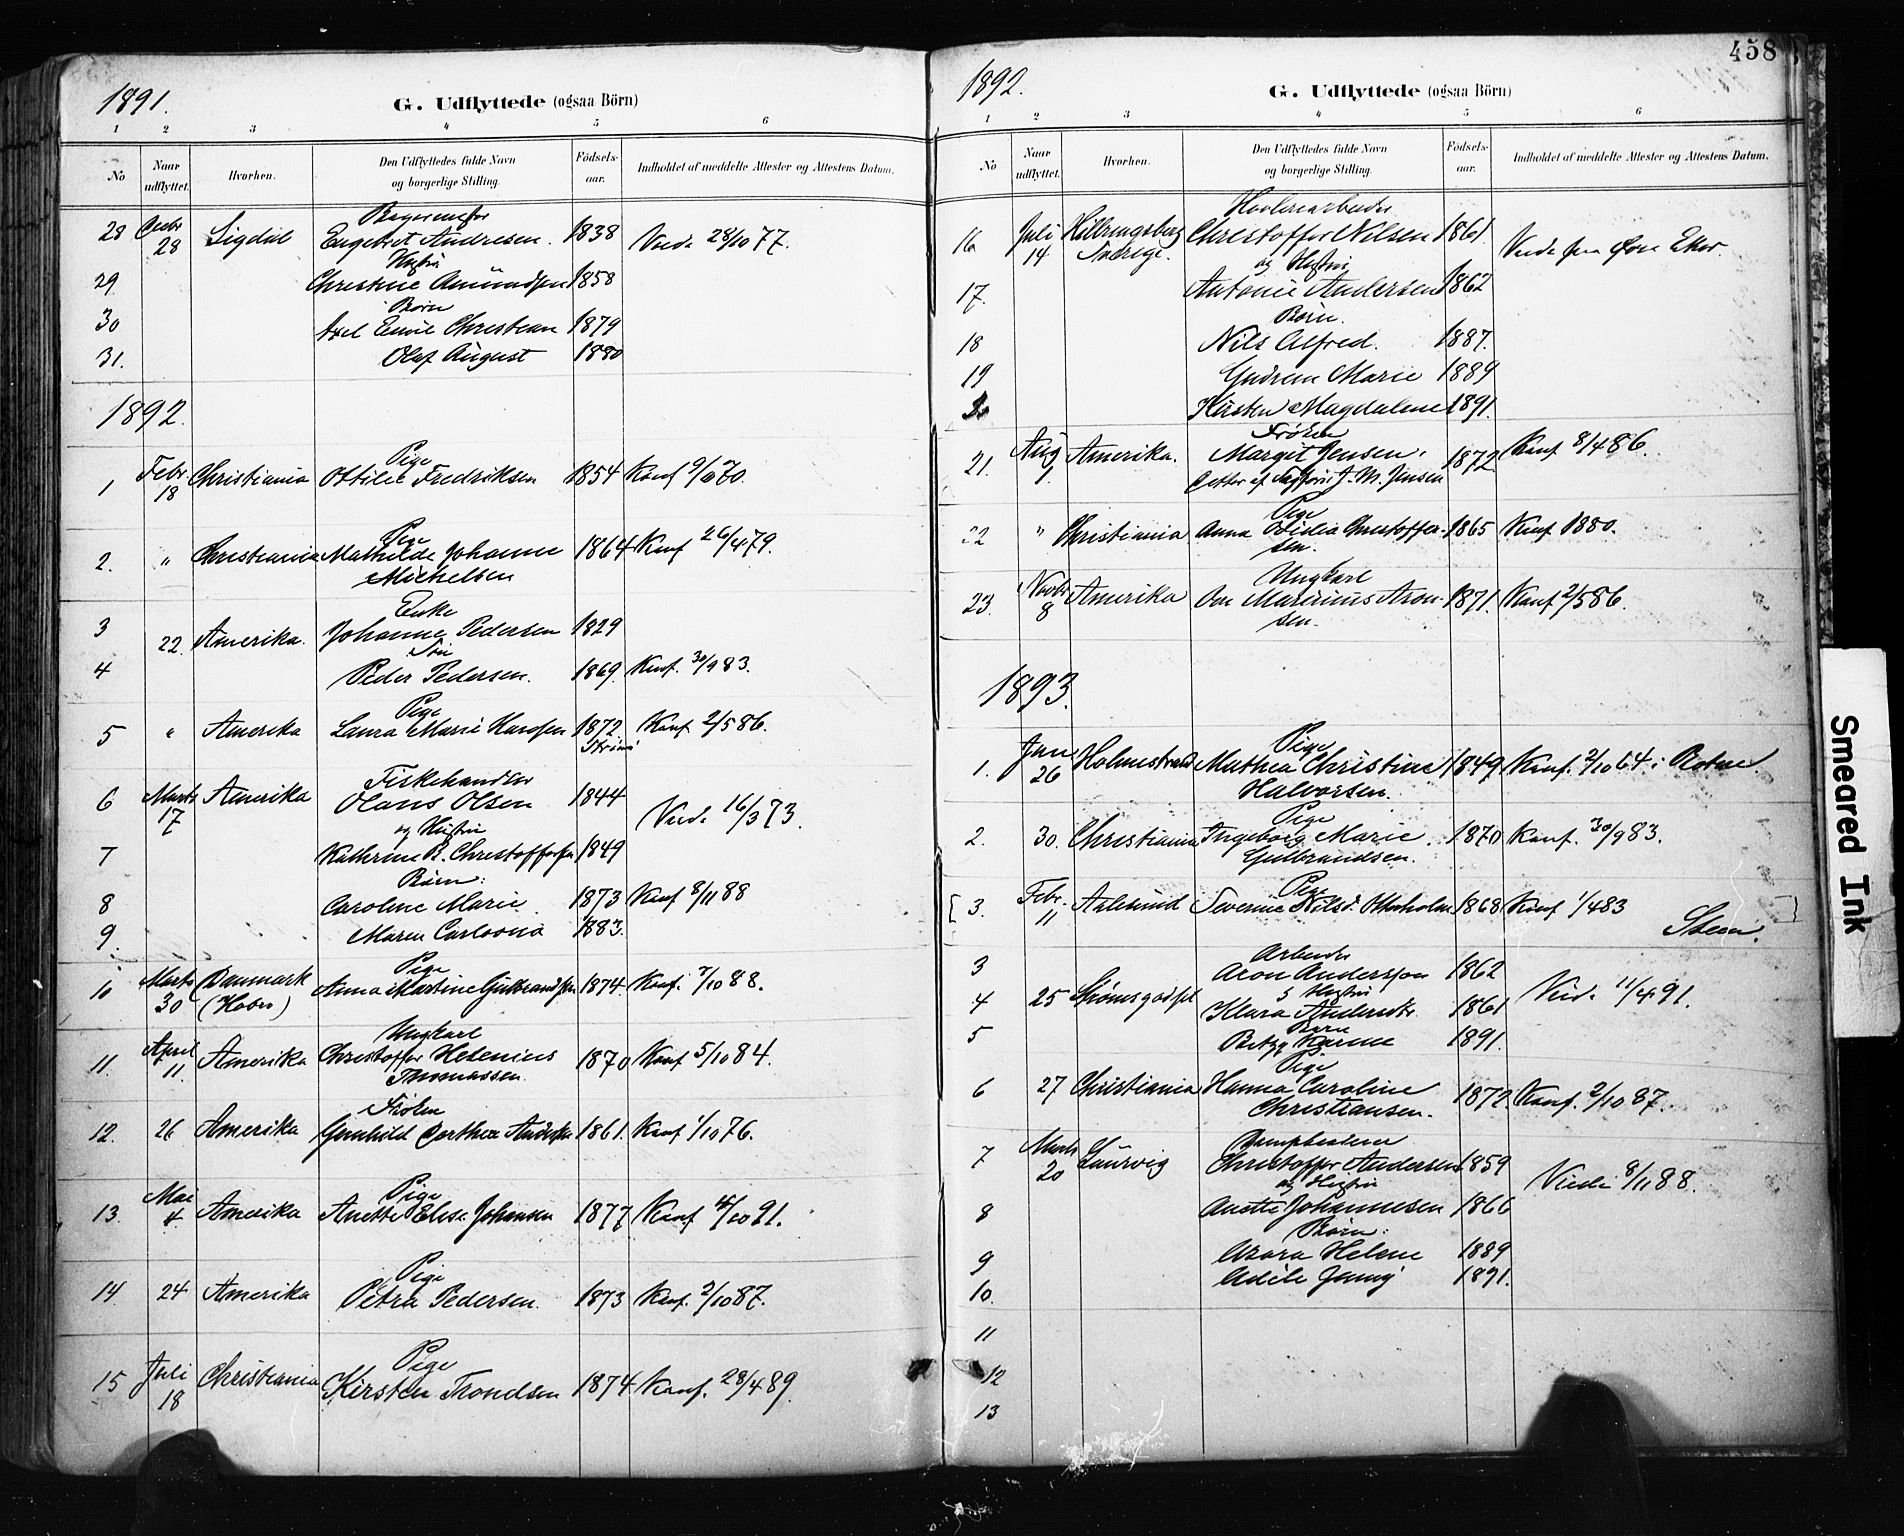 458
1891.
G. Udflyttede (ogsaa Börn)
1 2 3 4 5 6
No
Naar udflyttet.
Hvorhen.
Den Udflyttedes fulde Navn og borgerlige Stilling.
Födsels-aar.
Indholdet af meddelte Attester og Attestens Datum.
28 Decbr 28 Sigdal
Engebret Andresen. 1838 Viede 28/10 77.
Hustru
29 Christine Amundsen 1858
Børn
30 Axel Emil Christian 1879
31. Olaf August 1880
1892.
Pige
1 Febr 18 Christiania Ottilie Fredriksen 1854 Konf 9/10 70.
Pige
2. " Christiania Mathilde Johanne 1864 Konf 26/4 79.
Michelsen
Enke
3 22. Amerika. Johanne Pedersen 1829
Søn
4 Peder Pedersen. 1869. Konf. 30/9 83.
Pige
5 " Amerika Laura Marie Hansen 1872. Konf 2/5 86.
Fiskehandler
6 Marts 17 Amerika Olaus Olsen 1844 Viede 16/3 73.
og Hustru
7 Kathrine B. Christoffersen 1849
Børn:
8 Caroline Marie 1873 Konf 8/11 88
9. Maren 1883.
Pige
10 Marts 30 Danmark (Hobro) Anna Martine Gulbrandsen 1874. Konf. 7/10 88.
Ungkarl
11. April 11. Amerika Christoffer Helenius 1870 Konf 5/10 84.
Thomassen.
Frøken
12. 26 Amerika Gunhild Dorthea Andersen 1861. Konf 1/10 76.
Pige
13. Mai 4. Amerika Anette Elise Johansen 1877 Konf 4/10 91.
Pige
14. 24 Amerika Petra Pedersen. 1873 Konf. 2/10 87.
Pige
15 Juli 18 Christiania Kirsten Trondsen 1874 Konf. 28/4 89.
1892.
G. Udflyttede (ogsaa Börn)
1 2 3 4 5 6
No
Naar udflyttet.
Hvorhen.
Den Udflyttedes fulde Navn og borgerlige Stilling.
Födsels-aar.
Indholdet af meddelte Attester og Attestens Datum.
Høvleriarbeider
16 Juli 14 Hillringsberg Sverige. Christoffer Nilsen 1861. Viede fra Øvre Eker.
og Hustru
17. Antonie Andersen 1862
Børn.
18 Nils Alfred. 1887.
19 Gudrun Marie 1889
20 Kirsten Magdalene 1891.
Frøken
21. Aug 1 Amerika. Margit Jensen. 1872 Konf 8/4 86.
Datter af J. M. Jensen
Pige
22 " Christiania Anna Ovidia Christoffer- 1865 Konf 1880.
sen.
Ungkarl
23. Novbr 8 Amerika Marinius Aron- 1871. Konf 2/5 86.
sen.
1893.
Pige
1. Jan 26 Holmestrand Mathea Christine 1849 Konf. 2/10 64 i Botne.
Halvorsen.
Pige
2. 30. Christiania Ingeborg Marie 1870 Konf. 30/9 83.
Gulbrandsen.
Pige
[ 3. Febr. 11 Aalesund Severine Nilsd. Otterholm 1868 Konf 1/4 83 ]
Arbeider
3 Aron Andersson 1862
& Hustru
4 25 Strømsgodset Klara Andersdtr. 1861 Viede 11/4 91.
Barn
5 Betzy Karine 1891.
Pige
6 27 Christiania Hanna Caroline 1872. Konf. 2/10 87.
Christiansen.
7 Marts 20 Laurvig Christoffer Andersen 1859 Viede 8/11 88.
og Hustru
8 Anette Johannesen 1866
Børn:
9 Asora Helene 1889
10. Adéle Jenny 1891.
11
12
13
Smeared Ink